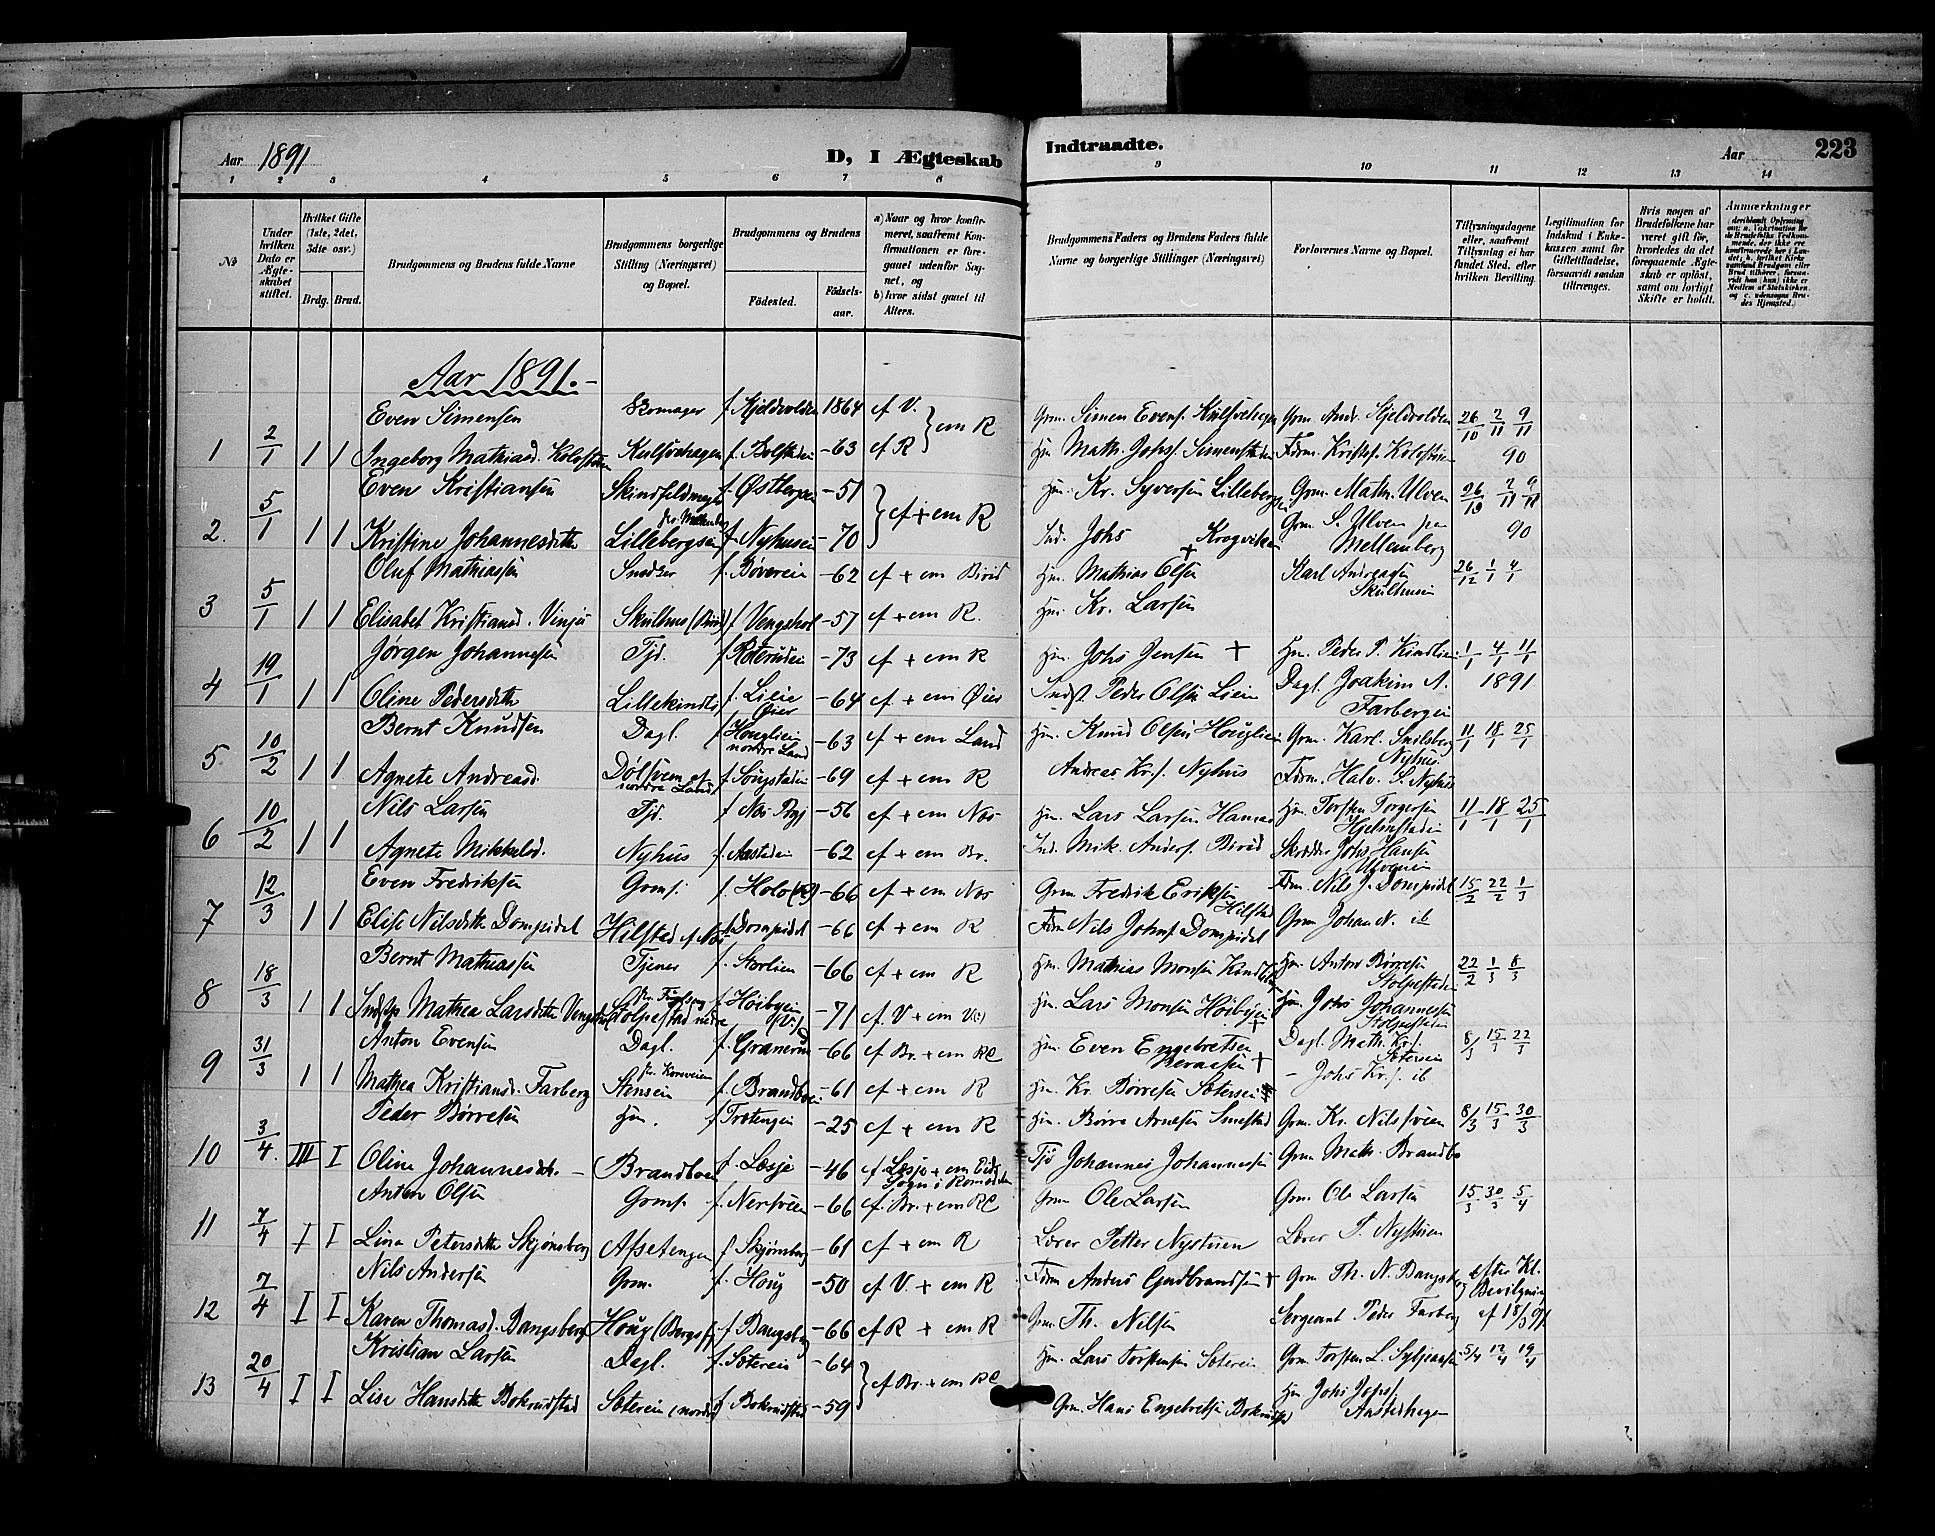 Aar 1891
D, I Ægteskab Indtraadte.
Aar 223
1 2 3 4 5 6 7 8 9 10 11 12 13 14
No
Under hvilken Dato er Ægteskabet stiftet.
Hvilket Gifte (1ste, 2det, 3dte osv.)
Brdg. Brud.
Brudgommens og Brudens fulde Navne
Brudgommens borgerlige Stilling (Næringsvei) og Bopæl.
Brudgommens og Brudens
Fødested. Fødselsaar.
a) Naar og hvor konfirmeret, saafremt Konfirmationen er foregaaet udenfor Sognet, og b) hvor sidst gaaet til Alters.
Brudgommens Faders og Brudens Faders fulde Navne og borgerlige Stillinger (Næringsvei)
Forlovernes Navne og Bopæl.
Tillysningsdagene eller, saafremt Tillysning ei har fundet Sted, efter hvilken Bevilling.
Legitimation for Indskud i Enkekassen samt for Giftetilladelse, forsaavidt saadan tiltrænges.
Hvis nogen af Brudefolkene har været gift før, hvorledes da det foregaaende Ægteskab er opløst, samt om lovligt Skifte er holdt.
Anmærkninger
Aar 1891.-
Even Simensen Skomager f. Kjeldvolden 1864 cf V. } em R Grm. Simen Evens. Kulsvehagen Grm. And. Kjeldvolden 26/10 2/11 9/11
1 2/1 1 1 Ingeborg Mathiasd. Kolofsten Kulsvehagen f. Bolstaden -63 cf R Hm Math. Johs. Simenstaden Fdrm. Kristof. 90
Even Kristiansen f. Østbergen -51 } cf + em R Hm. Kr. Syversen Lillebergen Grm. Math. Ulven 26/10 2/11 9/11
2. 5/1 1 1 Kristine Johannesdtr Lillebergen f. Nyhusen -70 Ind. Johs Krogviken Grm S. Ulven paa Mellemberg 90
Oluf Mathiassen Snedker f. Bøverein -62 cf + em Birid Hm. Mathias Olsen + Karl Andreasen Skulhusen 26/12 1/1 4/1
3 5/1 1 1 Elisabet Kristiansd. Vinju Skulhus (Birid) f. Vengshol -57 cf + em R. Hm. Kr. Larsen
Jørgen Johannesen Tjd. f. Roteruden -73 cf + em R Hm Johs Jensen + Hm. Peder P. Kindlien 1/1 4/1 11/1
4 19/1 1 1 Oline Pedersdtr Lillekindli f. Lilie Øier -64 cf + em Øier Indst Peder Olsen Lien Dagl. Joakim A. Farbergen 1891
Bernt Knudsen Dagl. f. Houglien nordre Land -63 cf + em Land Hm. Knud Olsen Houglien Grm. Karl. Snilsberg Nyhus 11/1 18/1 25/1
5. 10/2 1 1 Agnete Andreasd. f. Sougstaden -69 cf + em R Andreas Kr.s. Nyhus Fdrm. Halv. S. Nyhus
Nils Larsen Tjd. f Næs Prgj -56 cf + em Næs Hm. Lars Larsen Hm. Torsten Torgersen Hjelmstaden 11/1 18/1 25/1
6 10/2 1 1 Agnete Mikkelsd. Nyhus f. Aastaden -62 cf + em Br. Ind. Mik. Anders. Birid Skrædder Johs Hansen Ulvenen
Even Fredriksen Grms. f. Holo (R) -66 cf + em Næs Grm Fredrik Eriksen Hilstad Fdrm. Nils J. Dompidel 15/2 22/2 1/3
7 12/3 1 1 Elise Nilsdtr Dompidel Hilstad af Næs f. Dompidel -66 cf + em R Fdrm Nils Johns Dompidel Grm Johan N. ib
Bernt Mathiassen Tjener f. Storlien -66 cf + em R Hm. Mathias Monsen Kindlien Hm. Anton Børresen Stolpestaden 22/2 1/3 8/3
8 18/3 1 1 Indstp Mathea Larsdtr Stolpestad nedre f. Høibyen (V.) -71 cf. V + em V(?) Hm. Lars Monsen Høibyen Hm. Johs Johannessen Stolpestaden
Anton Evensen Dagl. f. Granerud -66 cf Br. + em RC Hm. Even Engebretsen + Dagl. Math. Kr.s. Sæterein 8/3 15/3 22/3
9 31/3 1 1 Mathea Kristiansd. Farberg Stensein f. Brandboen -61 cf + em R Hm. Kr. Børresen Sæterein - Johs Kr.s. ib
Peder Børresen Hm. f. Trotengen -25 cf + em R Hm. Børre Arnesen Smestad Grm. Kr. Nilssveen 8/3 15/3 30/3
10 3/4. III I Oline Johannesdtr. Brandboen f. Læsje -46 cf Læsje + em Eids Sogn i Romsdalen Tjd Johannes Johannesen Grm Math. Brandbo
Anton Olsen Grms. f. Nersveen -66 cf. Br. + em RC Grm Ole Larsen Grm. Ole Larsen 15/3 30/3 5/4
11 7/4 I I Lina Petersdtr Skjønsberg Afsetengen f. Skjønsberg -61 cf + em R Lærer Petter Nystuen Lærer P. Nystuen
Nils Andersen Grm. f. Houg -50 cf V. + em R Fdrm Anders Gudbrandsen + Grm Th. N. Bangsberg efter Kl. Bevilgning
12 7/4 I I Karen Thomasd. Bangsberg Houg (Bergs) f. Bangsberg -66 cf R + em R Grm. Th. Nilsen Sergeant Peder Farberg af 18/3 91
Kristian Larsen Dagl. f. Sæterein -64 } cf Br. + em RC Hm. Lars Torstensen Sæterein Grm Torsten L. Syljeaasen 5/4 12/4 19/4
13 20/4 I I Lise Hansdtr Bokrudstad Sæterein (nordre) f Bokrudstad -59 Grm. Hans Engebretsen Bokrudstad Hm Johs Johs. Aasterhagen